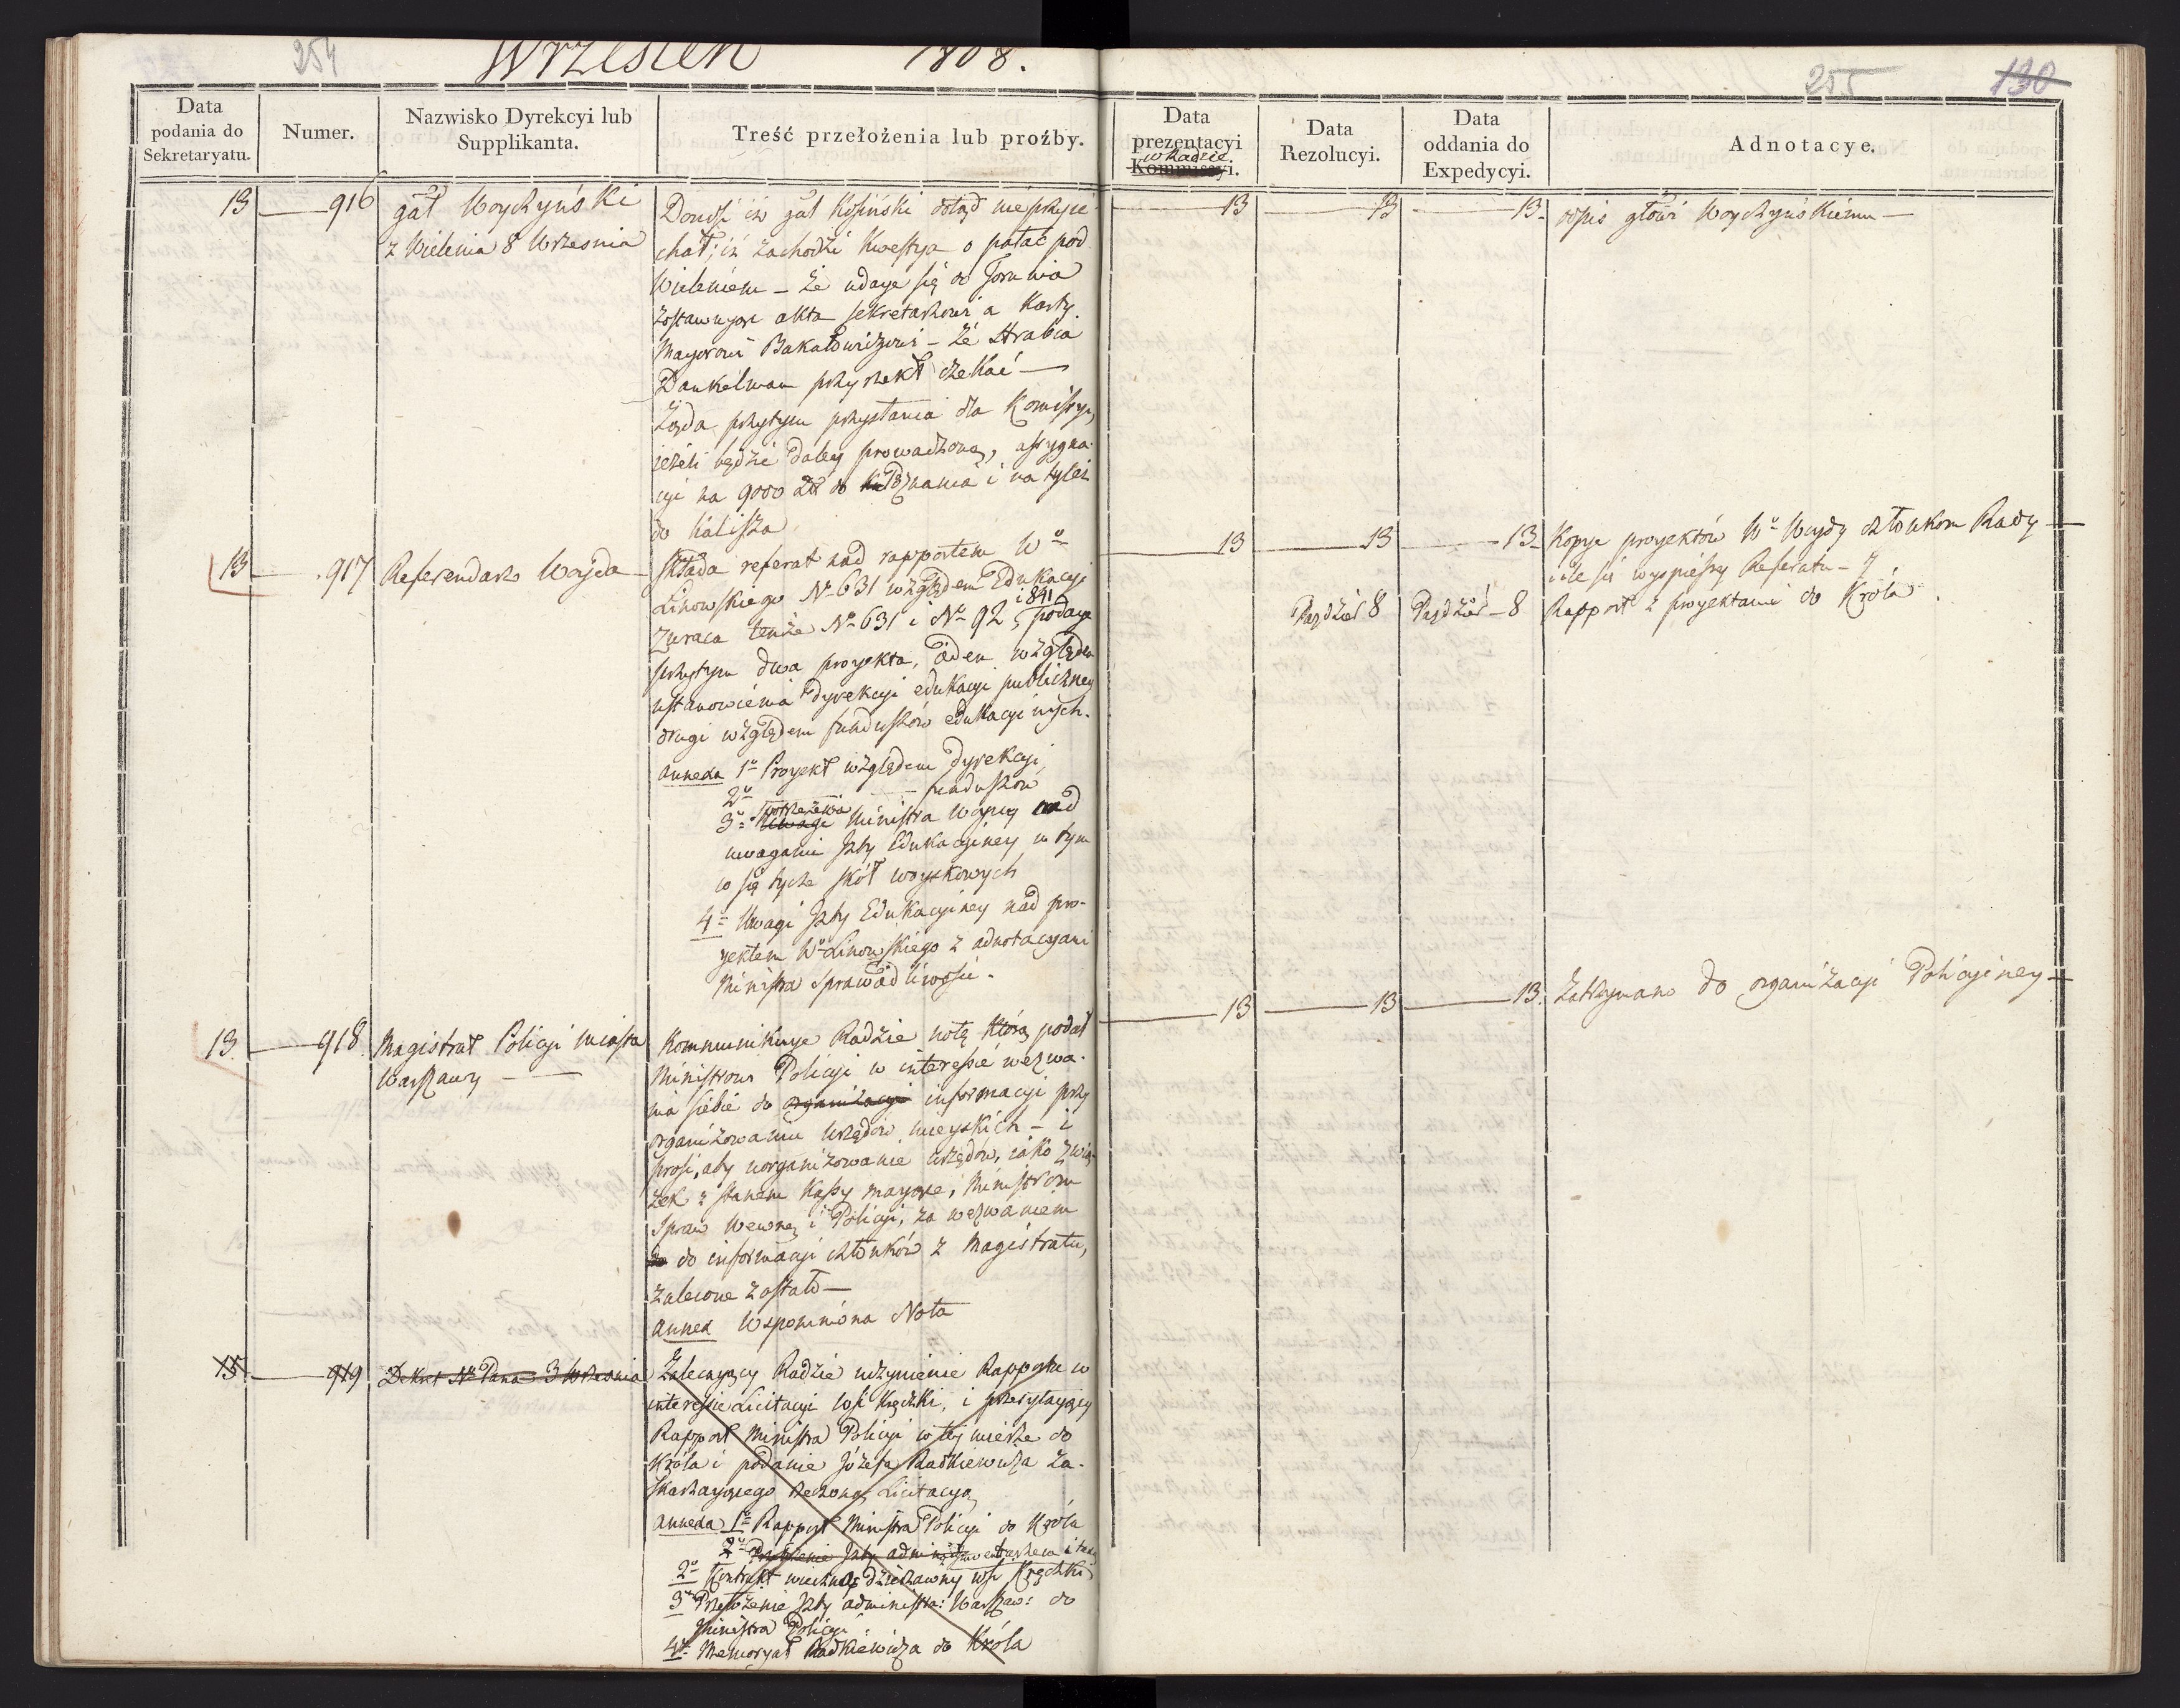 254
Wrzesień 1808.
255
130
Data podania do Sekretaryatu.
Numer.
Nazwisko Dyrekcyi lub Supplikanta.
Treść przełożenia lub proźby.
Data prezentacyi w Radzie. Kommissyi.
Data Rezolucyi.
Data oddania do Expedycyi.
Adnotacye.
13 916 gał Woyczyński
z Wielenia 8 Wrzesnia
Donosi iż gał Kosiński dotąd nieprzyie
chał; iż zachodzi kwestya o pałac pod
Wieleniem - że udaye się do Torunia
zostawuyąc akta sekretarzowi a karty
Mayorowi Bakałowiczowi - że Hrabia
Dankelman przyrzekł czekać —
Żąda przytym przysłania dla Komissyi,
ieżeli będzie daley prowadzona, assygna-
cyi na 9000 Zł do Poznania i na tyleż
do Kalisza
13 13 13. odpis gławi Woyczyńskiemu —
13 917 Referendarz Wojda
Składa referat nad rapportem Wo
Linowskiego No 631 względem Edukacyi
zwraca tenże No 631 i No 92 i 891, podaye
przytym dwa proyekta, öden względem
ustanowienia Dyrekcyi edukacyi publiczney
drugi względem funduszów edukacyinych.
annexa 1o Proyekt względem Dyrekcyi,
2o — — funduszów
3o Uwagi Ministra Woyny nad
uwagami Izby Edukacyiney w tym
co się tycze szkół woyskowych
4o Uwagi Izby Edukacyiney nad pro-
yektem Wo Linowskiego z adnotacyami
Ministra Sprawiedliwości.
13 13 13 Kopye proyektów Wo Woydy członkom Rady —
Pazdzier 8 Pazdzier 8 Rapport z proyektami do Króla.
13. 918. Magistrat Policyi miasta
Warszawy —
Kommunikuye Radzie notę którą podał
Ministrowi Policyi w interesie wezwa-
nia siebie do organizacyi informacyi przy
organizowaniu urzędów mieyskich - i
prosi, aby uorganizowanie urzędów, iako zwią-
zek z stanem kassy mayące, Ministrom
Spraw Wewnę i Policyi, za wezwaniem
do do informacyi członków z Magistratu,
zalecone zostało —
annex Wspomniona Nota
13 13 13. Zatrzymano do organizacyi Policyiney —
15. 919 Dekret N. Pana 3 Wrzesnia
Zalecayący Radzie uczynienie Rapportu w
interesie Licitacyi wsi Kręczki, i przesyłayący
Rapport Ministra Policyi w tej mierze do
Króla i podanie Józefa Radkiewicza za-
skarzayącego rzeczoną Licitacyą
annexa 1o Rapport Ministra Policyi do Króla
2o Kontrakt wieczno dzierżawny wsi Kręczki
3o Przełożenie Izby administra: Warszaw: do
Ministra Policyi
4o Memoryał Radkiewicza do Króla